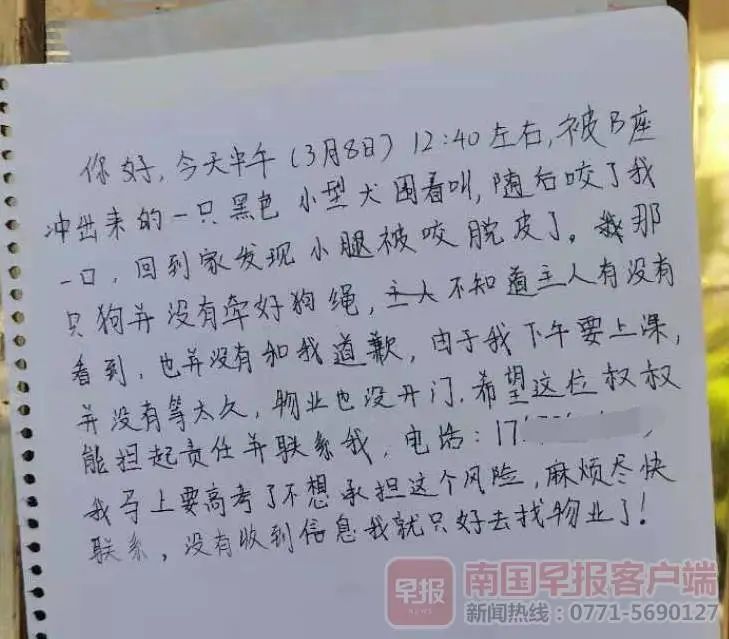 你好,今天中午(3月8日)12:40左右,被B座
冲出来的一只黑色小型犬围着叫,随后咬了我
一口,回到家发现小腿被咬脱皮了。我那
只狗并没有牵好狗绳,主人不知道主人有没有
看到,也并没有和我道歉,由于我下午要上课,
并没有等太久,物业也没开门,希望这位叔叔
能担起责任并联系我,电话:17
我马上要高考了不想承担这个风险,麻烦尽快
联系,没有收到信息我就只好去找物业了!
早报
NEWS
南国早报客户端
新闻热线:0771-5690127